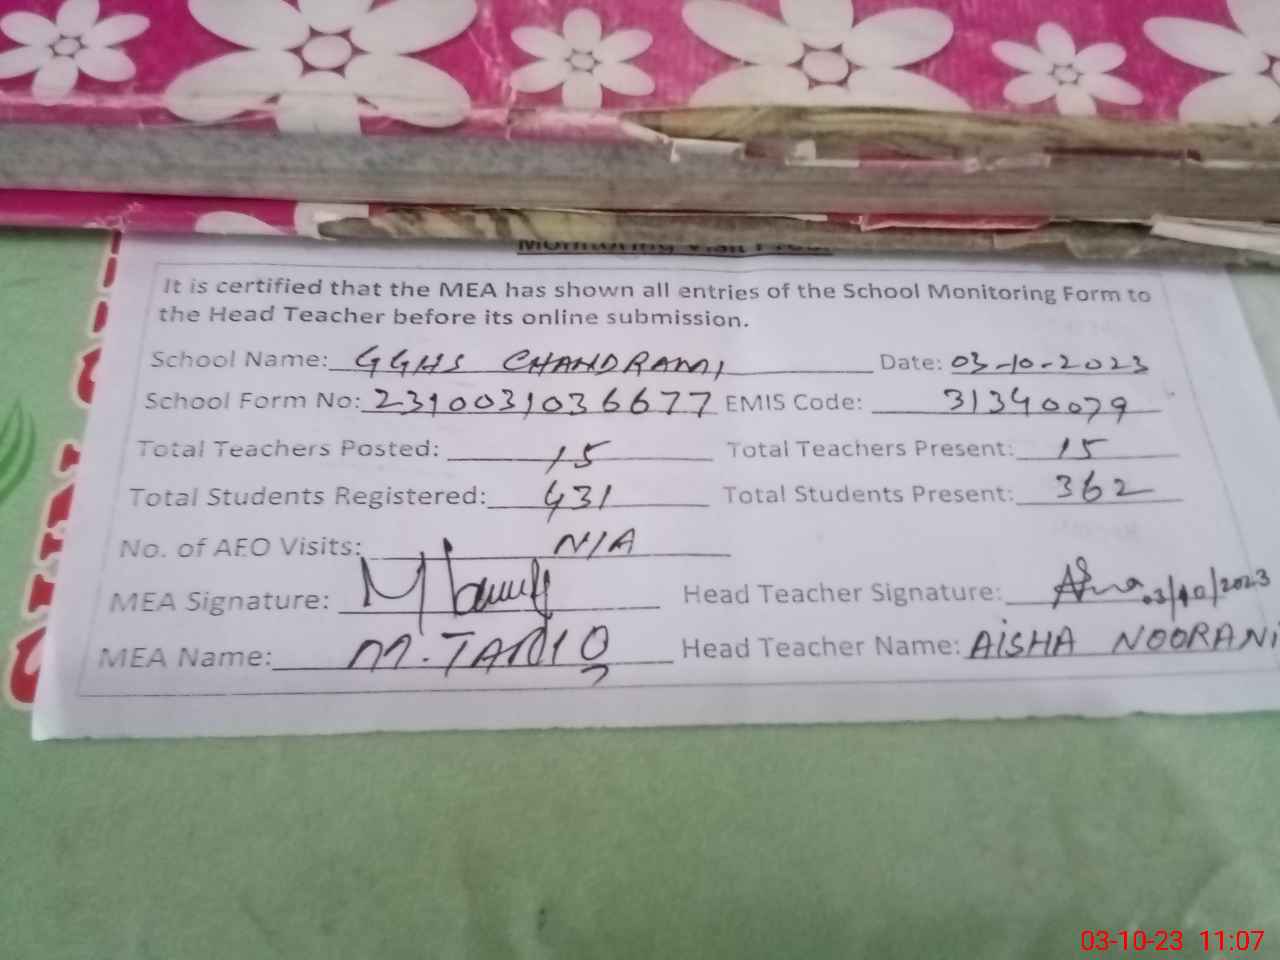 Monitoring Visit Proof
It is certified that the MEA has shown all entries of the School Monitoring Form to
the Head Teacher before its online submission.
School Name: GGHS CHANDRAMI Date: 03-10-2023
School Form No: 2310031036677 EMIS Code: 31340079
Total Teachers Posted: 15 Total Teachers Present: 15
Total Students Registered: 431 Total Students Present: 362
No. of AEO Visits: N/A
MEA Signature: Head Teacher Signature: 03/10/2023
MEA Name: M. TARIQ Head Teacher Name: AISHA NOORANI
03-10-23 11:07